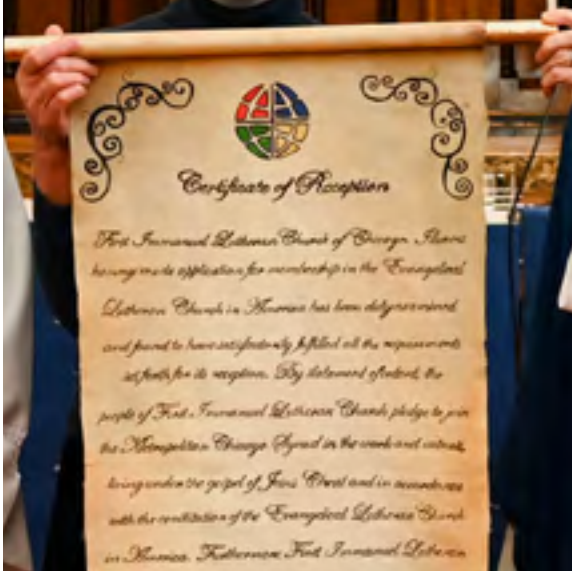 Certificate of Reception
First Immanuel Lutheran Church of Chicago, Illinois
having made application for membership in the Evangelical
Lutheran Church in America has been duly examined
and found to have satisfactorily fulfilled all the requirements
set forth for its reception. By statement of intent, the
people of First Immanuel Lutheran Church pledge to join
the Metropolitan Chicago Synod in the work and
living under the gospel of Jesus Christ and in accordance
with the constitution of the Evangelical Lutheran Church
in America. Furthermore First Immanuel Lutheran